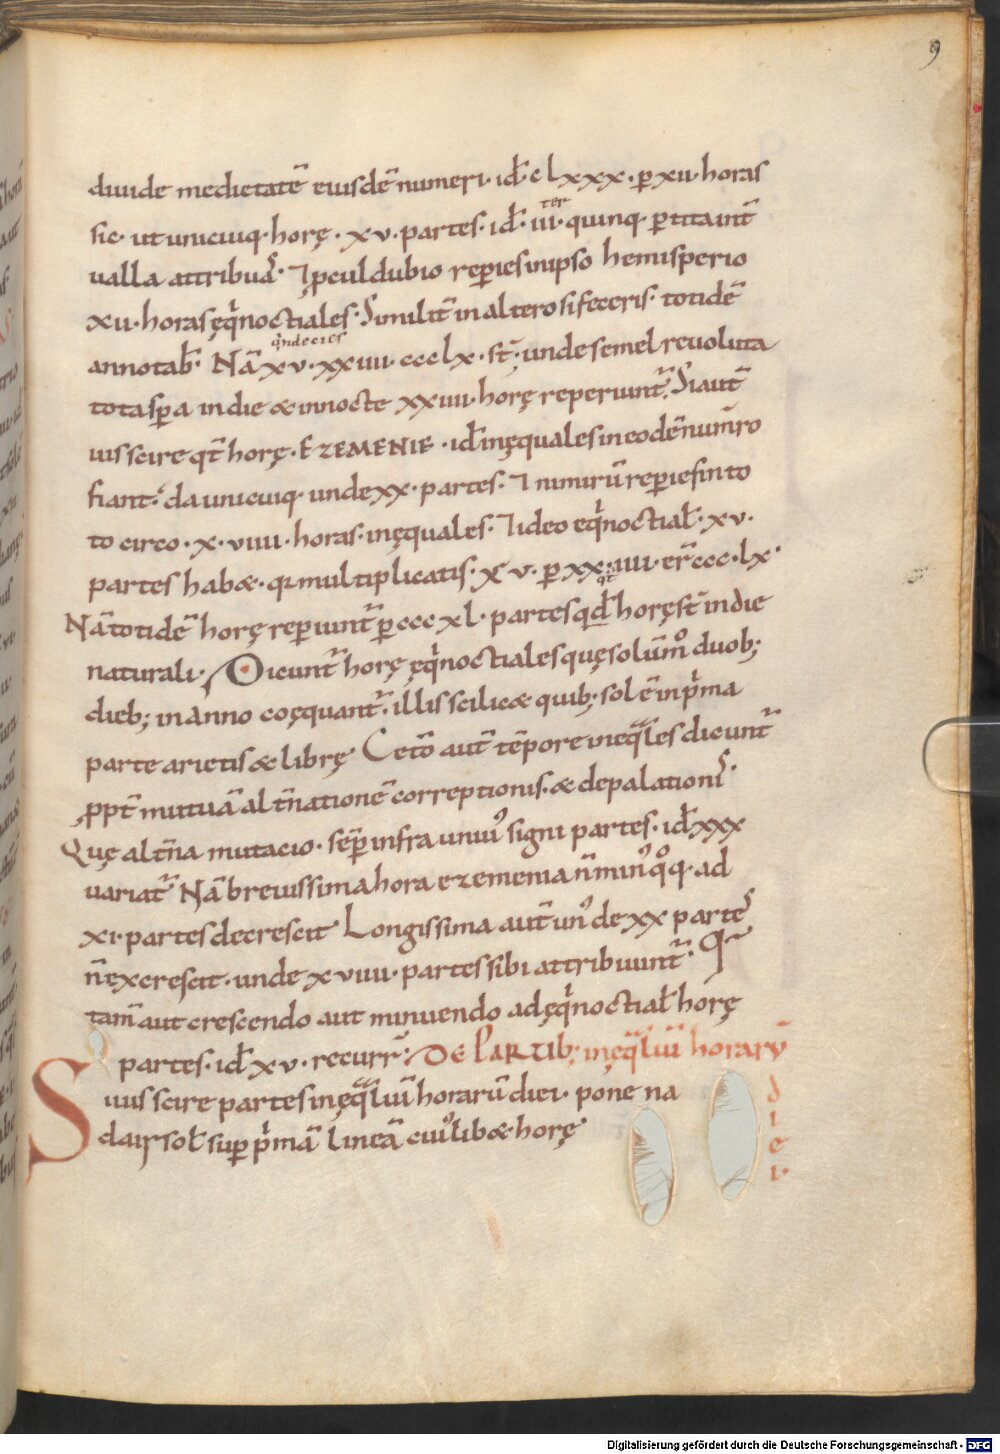 9
diuide medietatē eiusdē numeri· id̄· clxxx· ꝑ xii· horas
sic· ut unicuiq· horę· xv· partes· id̄· iii·ter quinq· ꝑtita int̄
ualla attribuas· ⁊ ꝓculdubio reꝑies in ipso hemisperio
xii· horas ęq̇noctiales· Similit̄ in altero si feceris· totidē
annotab̄· Nā xv· q̇ndecies xxiiii· ccclx· st̄· unde semel reuoluta
tota sꝑa in die & in nocte xxiiii· horę reperiunt̄· Si aut̄
uis scire qt̄ horę· EZEMENIE· id̄ inęquales in eodē num̄ro
fiant· da unicuiq· unde xx· partes· ⁊ nimirū reꝑies in to
to circo· x·viiii· horas· inęquales· ⁊ ideo eq̇noctial̄· xv·
partes hab&· q multiplicatis· xv· ꝑ xx·iiii· er̄ ccc·lx·
Nā totidē horę reꝑiunt̄ ꝑ cccxl· partes qd̄ horę st̄ in die
naturali· Dicunt̄ horę ęq̇noctiales quę solūm̊ duob;
dieb; in anno coęquant̄· illis scilic& quib; sol ē in p̍ma
parte arietis & librę Cet̄o aut̄ tēpore ineq̄les dicunt̄
ꝓpt̄ mutuā alt̄natione correptionis· & depalationis·
Quę alt̄na mutacio· sēp infra unius signi partes· id̄ xxx
uariat̄ Nā breuissima hora ezemenia n̄ minus q̊q· ad
xi· partes decrescit Longissima aut̄ un' de xx partes
n̄ excrescit· unde xviiii· partes sibi attribuunt̄· Q̄
tam̄ aut crescendo aut minuendo ad ęq̇noctial̄ horę
partes· id̄ xv· recurr̄· DE PARTIB; inęq̄liū horarū
diei·
Suis scire partes inęq̄liū horarū diei· pone na
dair sol̄ suꝑ p̍mā lineā cuiuslib& horę
Digitalisierung gefördert durch die Deutsche Forschungsgemeinschaft - DFG